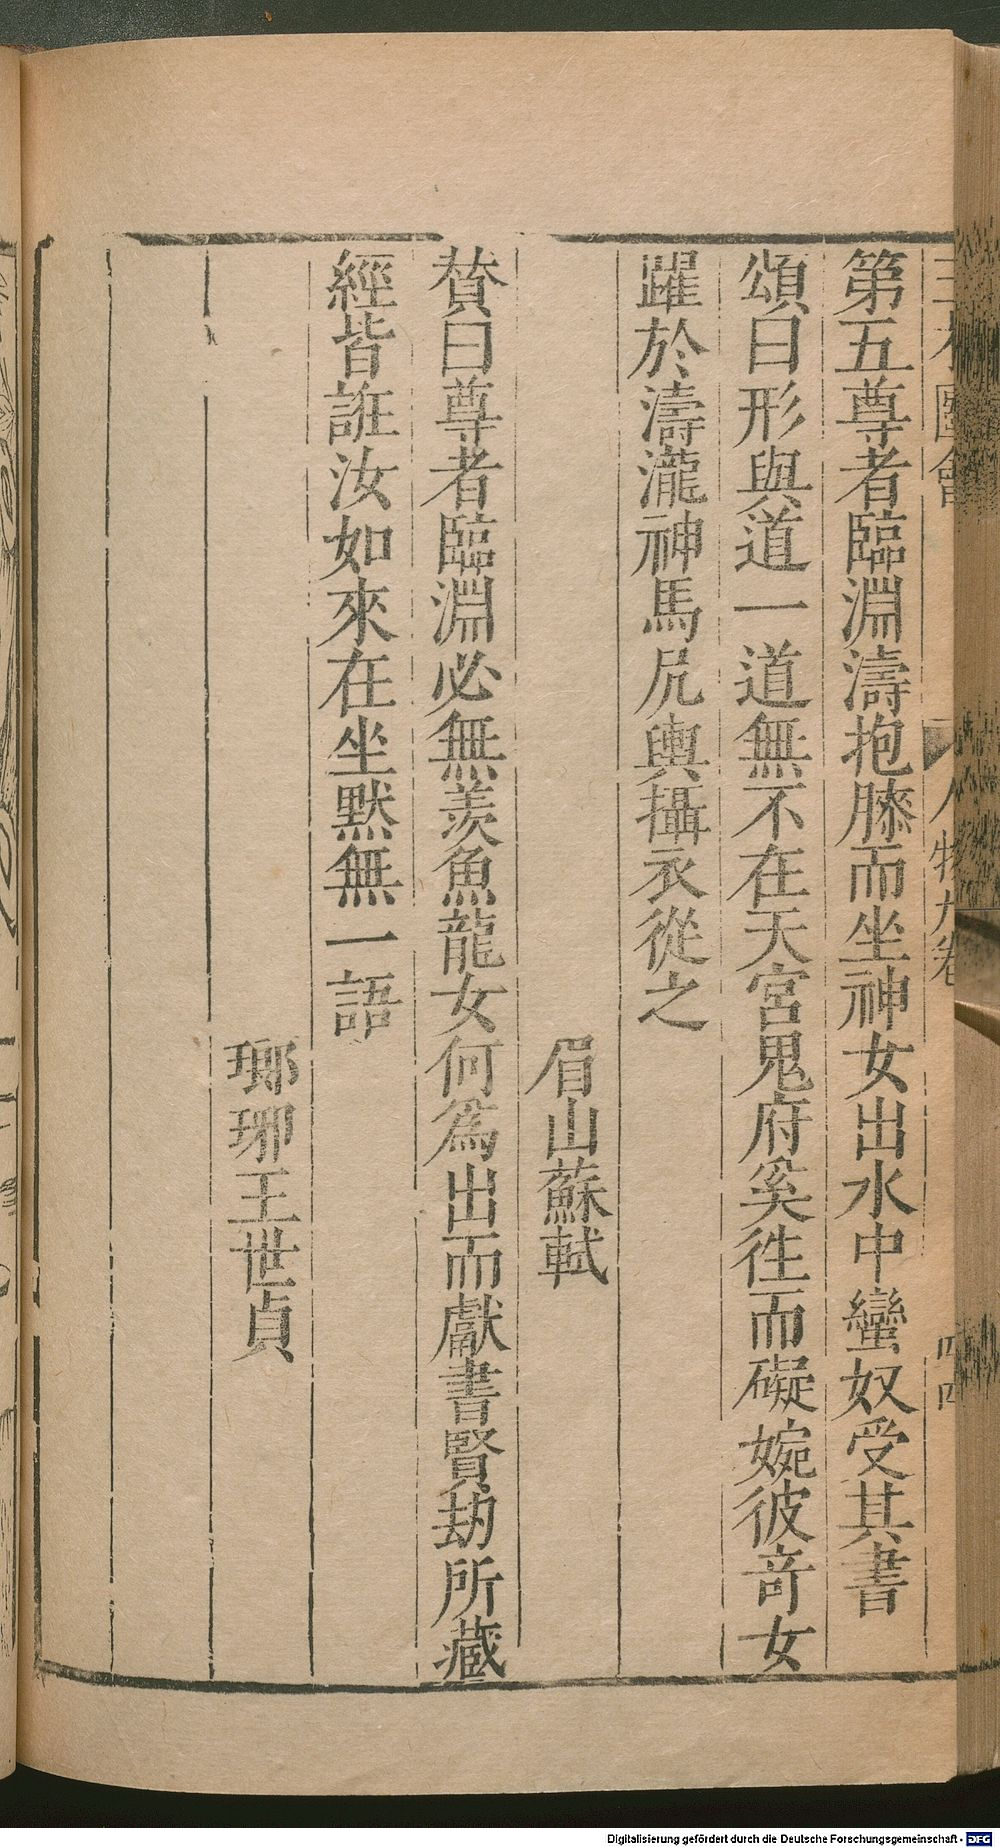 三才圖會 人物九卷 四四
第五尊者臨淵濤抱膝而坐神女出水中蠻奴受其書
頌曰形與道一道無不在天宮鬼府奚徃而礙婉彼竒女
躍於濤瀧神馬尻輿攝衣從之
眉山蘇軾
賛曰尊者臨淵必無羨魚龍女何爲出而獻書賢劫所藏
經皆誑汝如來在坐默無一語
瑯琊王世貞
Digitalisierung gefördert durch die Deutsche Forschungsgemeinschaft - DFG